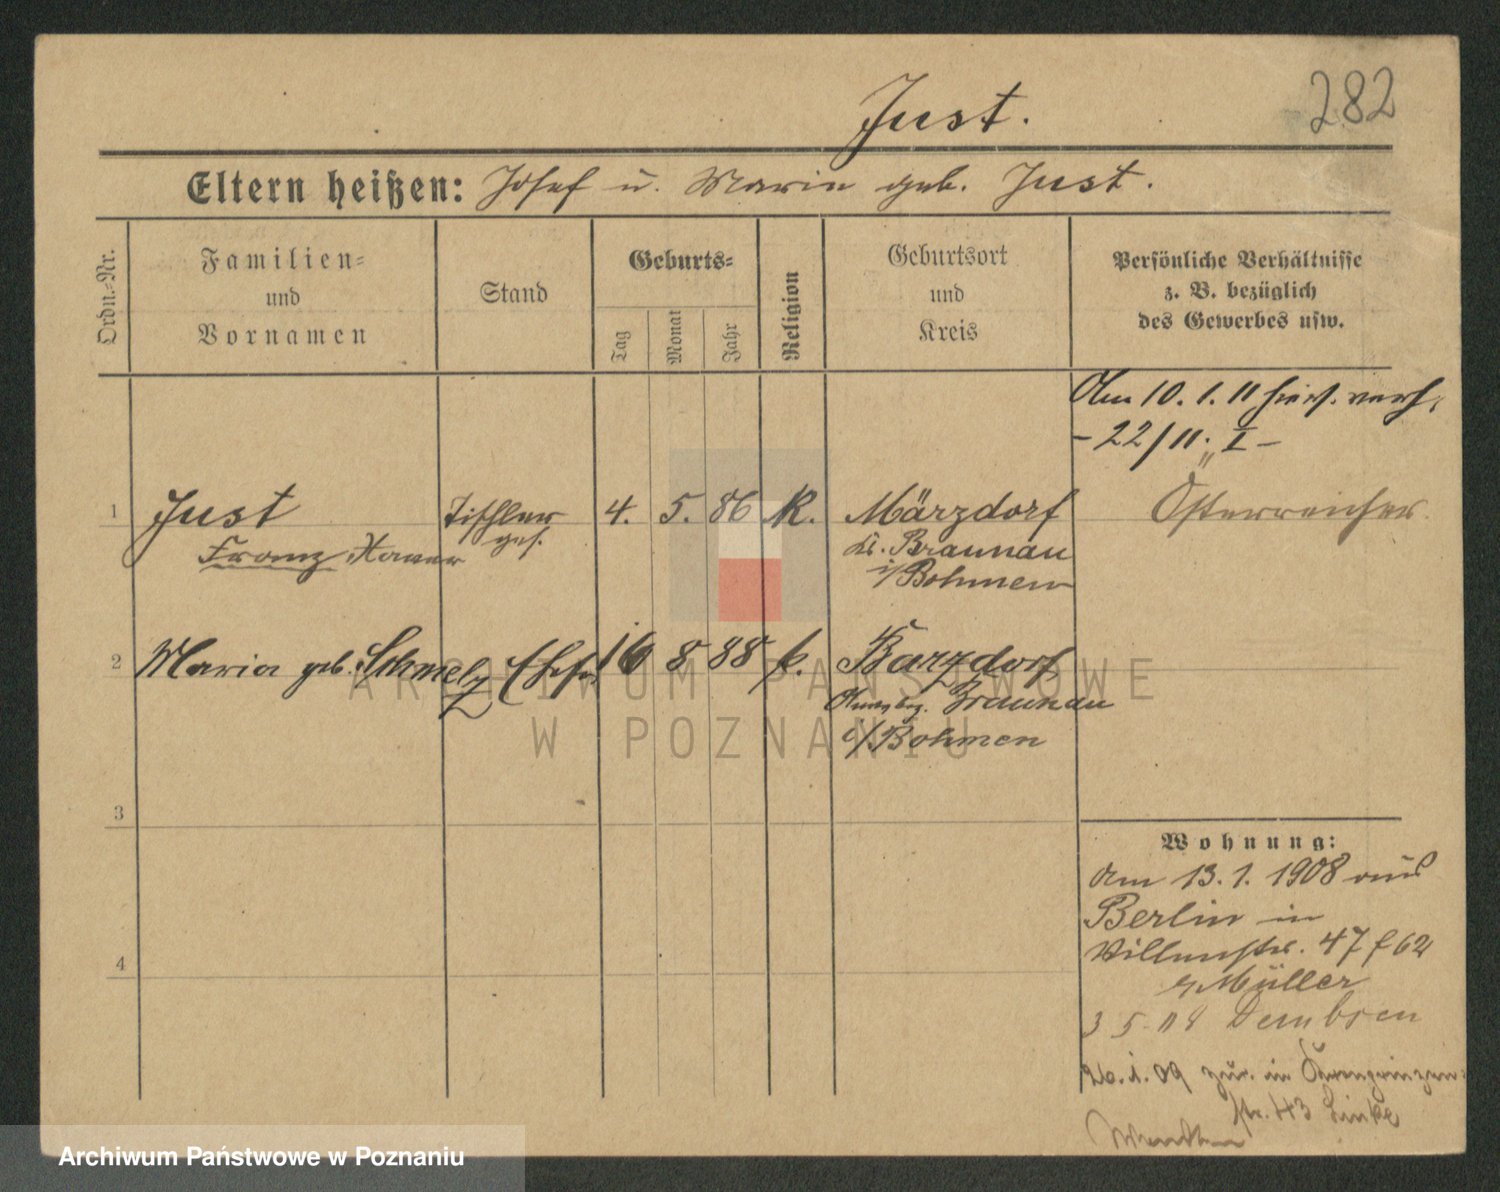 282
Just.
Eltern heißen: Josef u. Maria geb. Just.
Ordn.-Nr.
Familien-
und
Vornamen
Stand
Geburts-
Tag
Monat
Jahr
Religion
Geburtsort
und
Kreis
Persönliche Verhältnisse
z. B. bezüglich
des Gewerbes usw.
Am 10. 1. 11 hiers. verh.
- 22/11. I -
1 Just Tischler 4. 5. 86 K. Märzdorf Österreicher
Franz Xaver ges. Kr. Braunau
i/Bohmen
2 Maria geb. Schmelz Ehefr. 16 8 88 k. Barzdorf
Braunau
i/Bohmen
3
4
Wohnung:
Am 13. 1. 1908 aus
Berlin in
47 62
Müller
3 5 08 Dembsen
26. 1. 09 zur. in Kronprinzen-
str. 43 Linke
ARCHIWUM PAŃSTWOWE
W POZNANIU
Archiwum Państwowe w Poznaniu